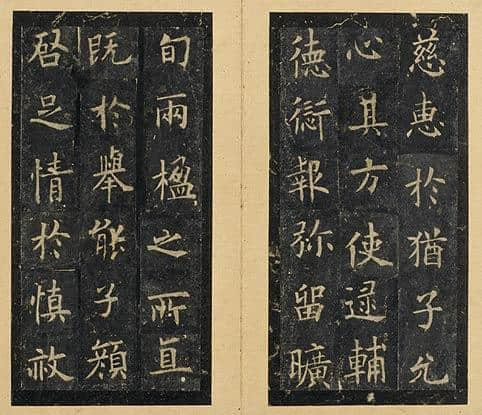 慈惠於猶子允
心其方使逯輔
徳愆報弥留曠
旬兩楹之所
既於舉能子顏
啓足情於慎